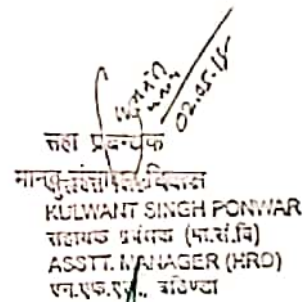 02.05.15
सहा प्रबन्धक
मानव संसाधन विकास
KULWANT SINGH PONWAR
सहायक प्रबंधक (मा.सं.वि)
ASSTT. MANAGER (HRD)
एन.एफ.एल., बठिण्डा